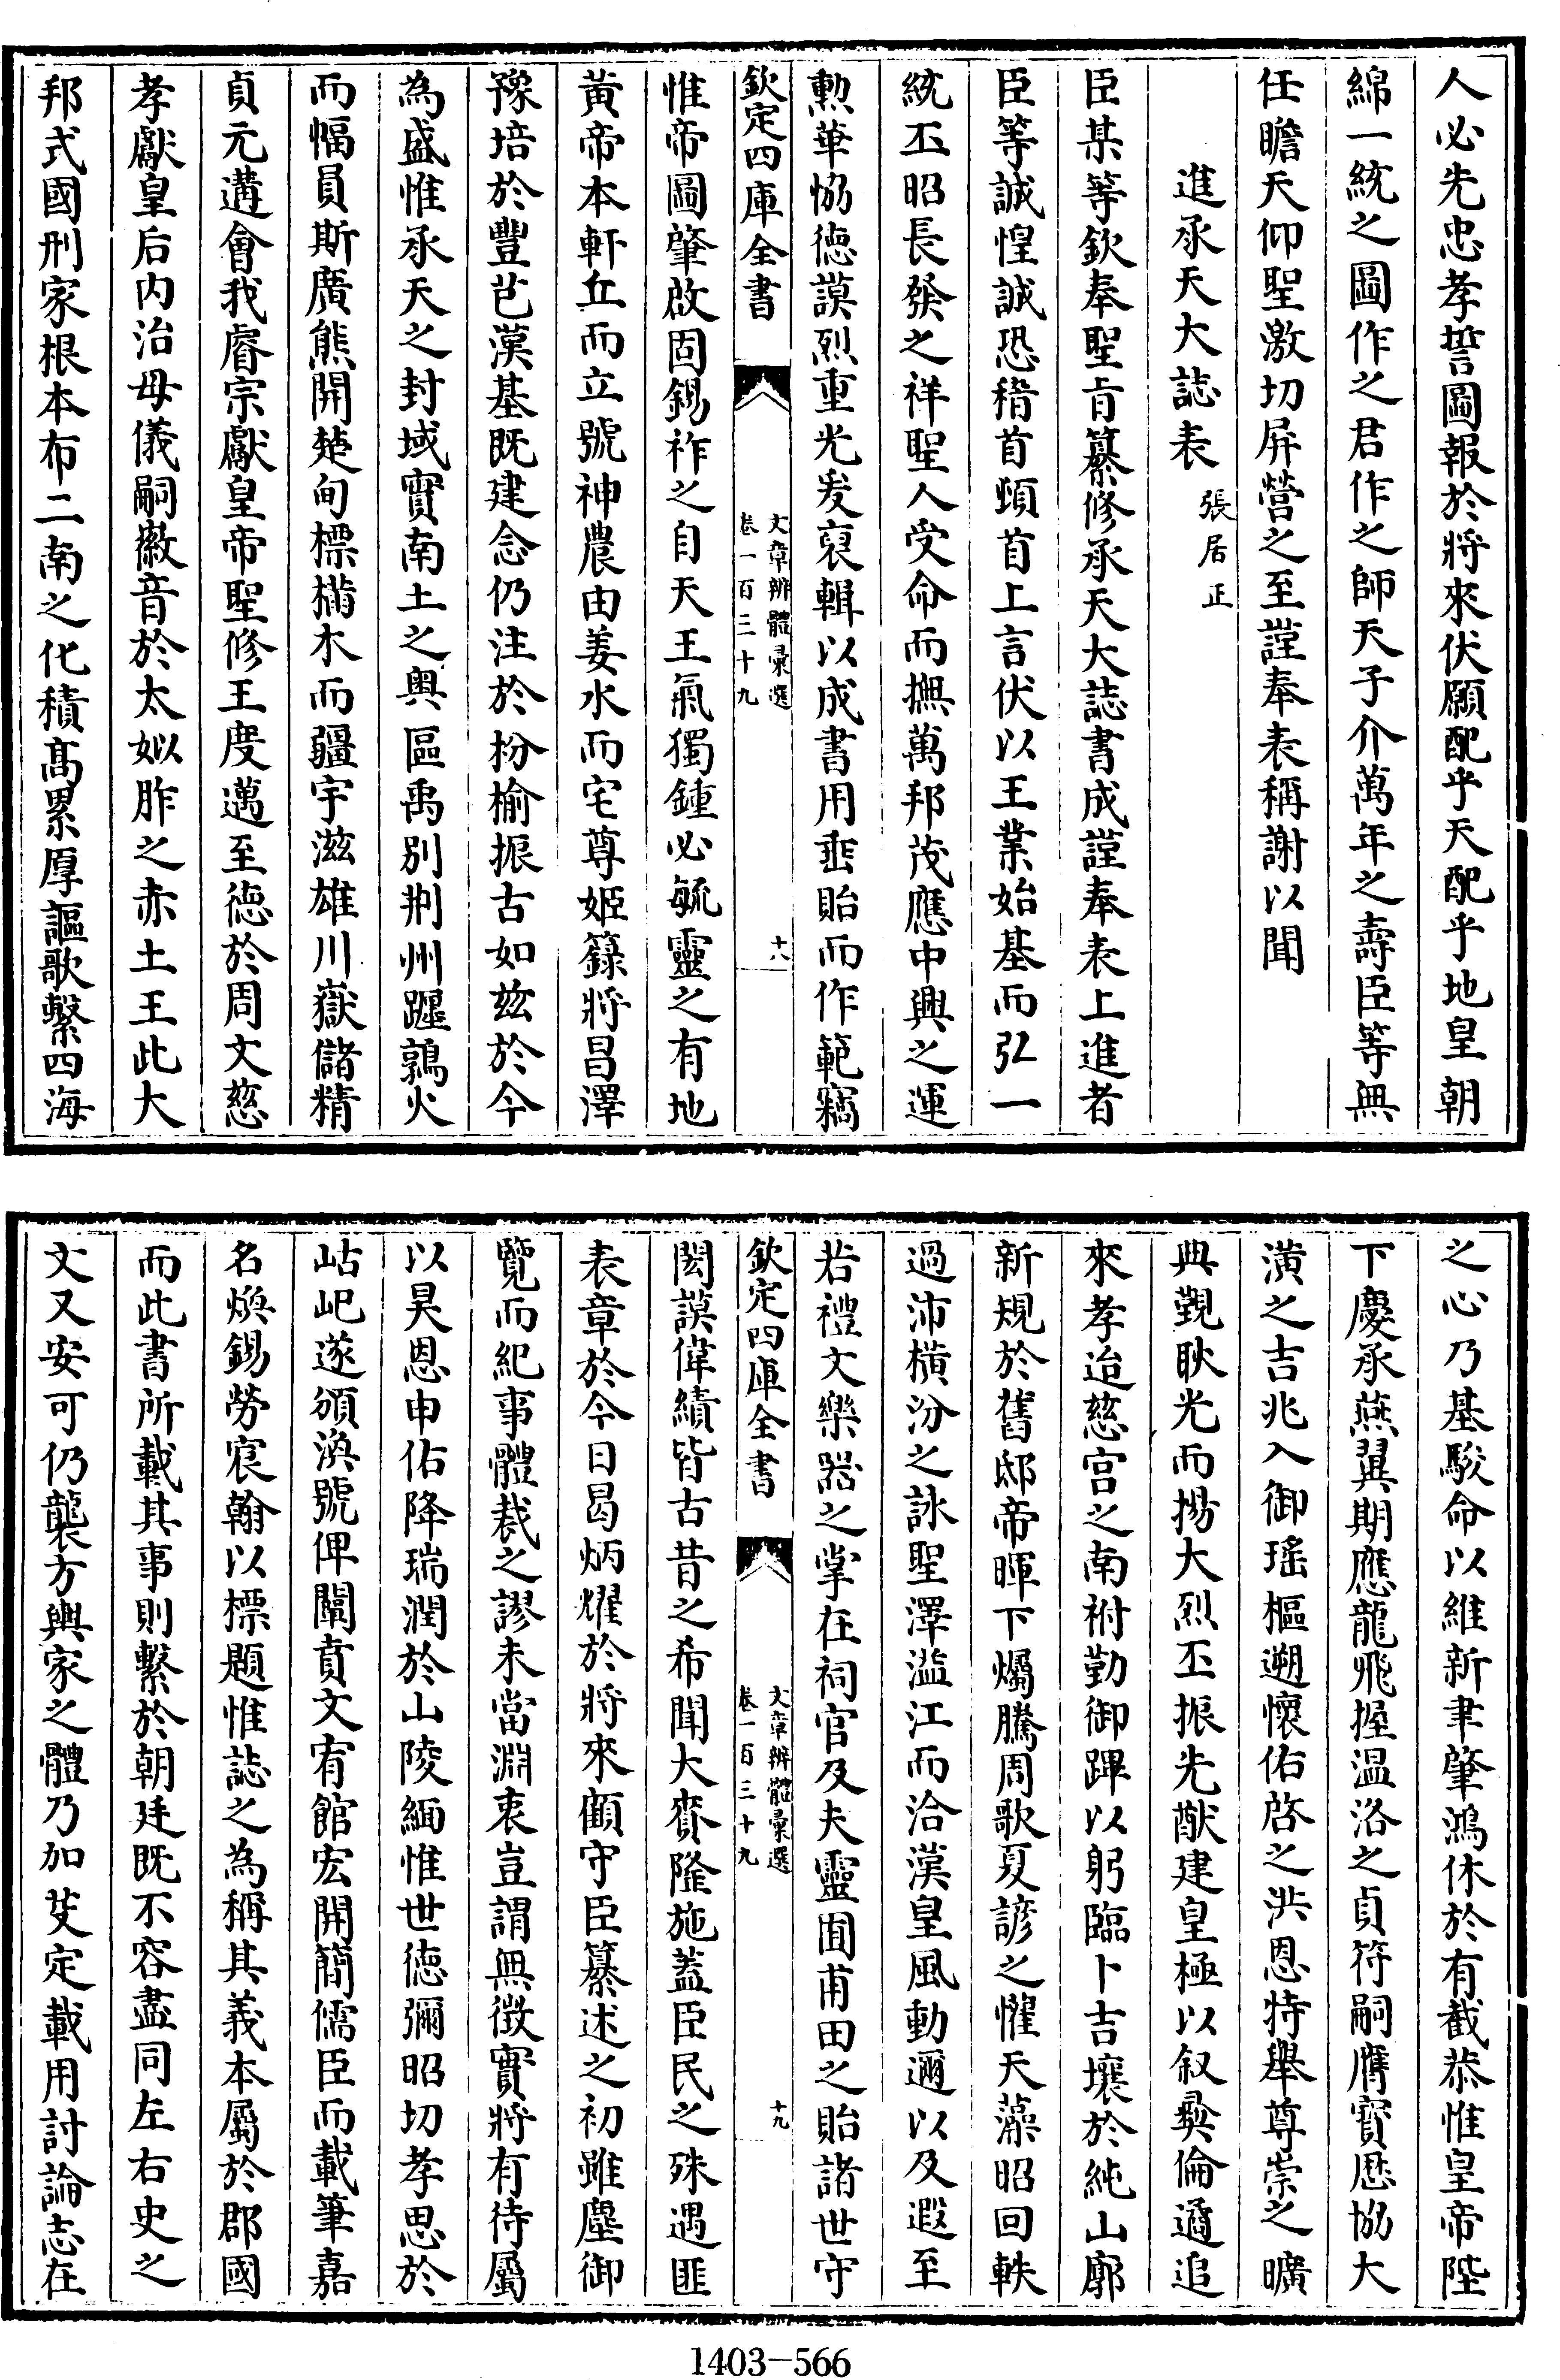 人必先忠孝誓圖報於將來伏願配乎天配乎地皇朝
綿一統之圖作之君作之師天子介萬年之壽臣等無
任瞻天仰聖激切屏營之至謹奉表稱謝以聞
進承天大誌表 張居正
臣某等欽奉聖旨纂修承天大誌書成謹奉表上進者
臣等誠惶誠恐稽首頓首上言伏以王業始基而弘一
統丕昭長發之祥聖人受命而撫萬邦茂應中興之運
勲華恊徳謨烈重光爰裒輯以成書用垂貽而作範竊
欽定四庫全書 文章辨體彚選 卷一百三十九 十八
惟帝圖肇啟固錫祚之自天王氣獨鍾必毓靈之有地
黃帝本軒丘而立號神農由姜水而宅尊姬籙將昌澤
豫培於豐芑漢基既建念仍注於枌榆振古如玆於今
為盛惟承天之封域實南土之奥區禹别荆州躔鶉火
而幅員斯廣熊開楚甸標樠木而疆宇滋雄川嶽儲精
貞元遘會我睿宗獻皇帝聖修王度邁至徳於周文慈
孝獻皇后内治母儀嗣徽音於太姒胙之赤土王此大
邦式國刑家根本布二南之化積髙累厚謳歌繫四海
之心乃基駿命以維新聿肇鴻休於有截恭惟皇帝陛
下慶承燕翼期應龍飛握温洛之貞符嗣膺寳厯協大
潢之吉兆入御瑤樞遡懷佑啓之洪恩特舉尊崇之曠
典觐耿光而揚大烈丕振先猷建皇極以叙彛倫遹追
來孝迨慈宫之南祔勤御蹕以躬臨卜吉壤於純山廓
新規於舊邸帝暉下燭騰周歌夏諺之懽天藻昭回軼
過沛橫汾之詠聖澤溢江而洽漢皇風動邇以及遐至
若禮文樂器之掌在祠官及夫靈囿甫田之貽諸世守
欽定四庫全書 文章辨體彚選 卷一百三十九 十九
閎謨偉績皆古昔之希聞大賚隆施葢臣民之殊遇匪
表章於今日曷炳燿於將來顧守臣纂述之初雖塵御
覽而紀事體裁之謬未當淵衷豈謂無徴實將有待屬
以昊恩申佑降瑞潤於山陵緬惟世徳彌昭切孝思於
岵屺遂頒渙號俾闡賁文宥館宏開簡儒臣而載筆嘉
名煥錫勞宸翰以標題惟誌之為稱其義本屬於郡國
而此書所載其事則繫於朝廷既不容盡同左右史之
文又安可仍襲方輿家之體乃加芟定載用討論志在
1403—566